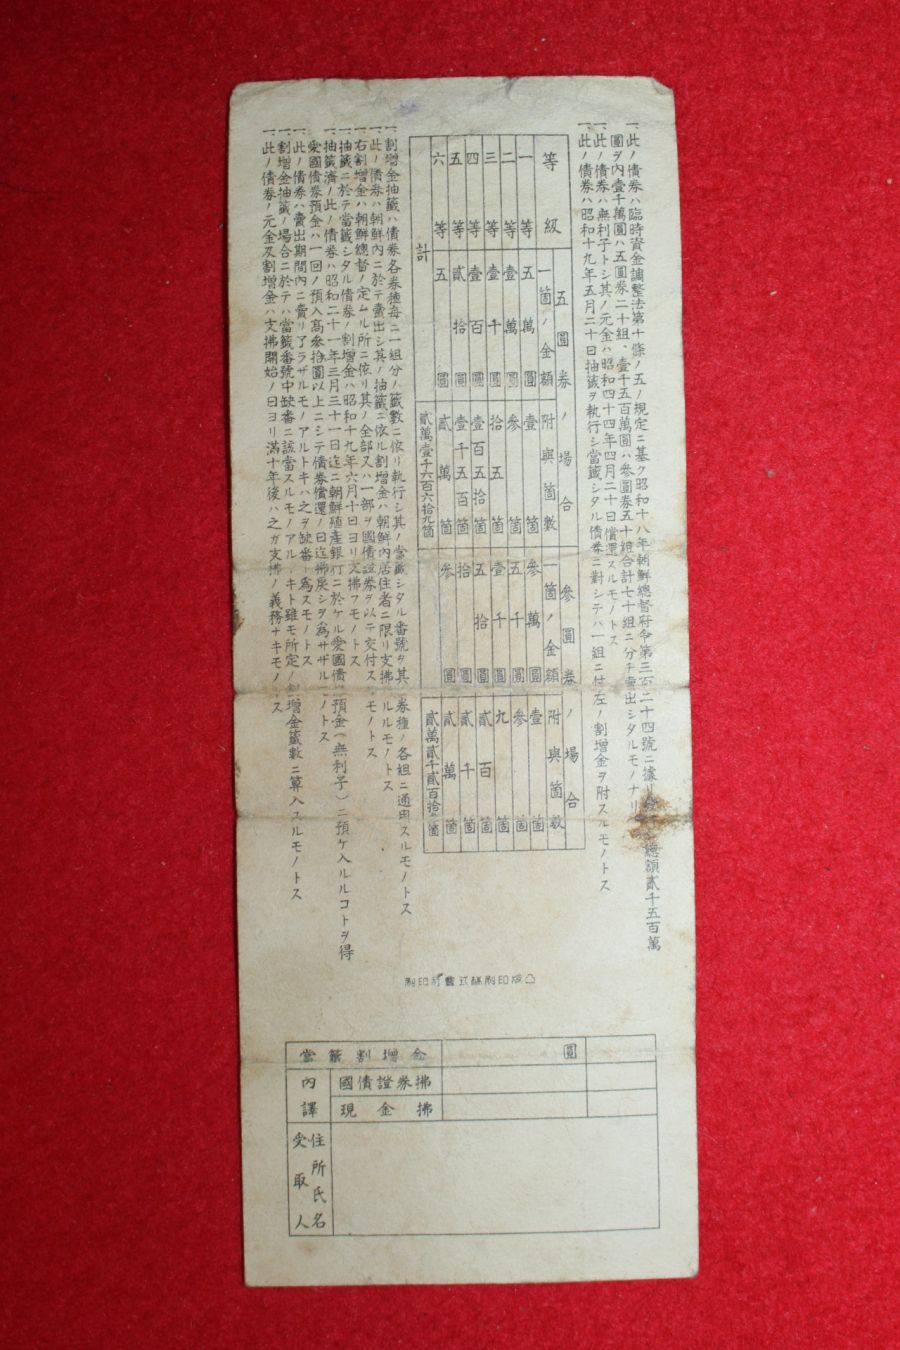 一、此ノ債券ハ臨時資金調整法第十條ノ五ノ規定ニ基ク昭和十八年朝鮮總督府令第三百二十四號ニ據リ總額貳千五百萬
圓ヲ內壹千萬圓ハ五圓券二十組、壹千五百萬圓ハ參圓券五十組合計七十組ニ分チ賣出シタルモノナリ
一、此ノ債券ハ無利子トシ其ノ元金ハ昭和四十四年四月二十日償還スルモノトス
一、此ノ債券ハ昭和十九年五月二十日抽籤ヲ執行シ當籤シタル債券ニ對シテハ一組ニ付左ノ割增金ヲ附スルモノトス
五圓券ノ場合 參圓券ノ場合
等級 一箇ノ金額 附與箇數 一箇ノ金額 附與箇數
一等 五萬圓 壹箇 參萬圓 壹箇
二等 壹萬圓 參箇 五千圓 參箇
三等 壹千圓 拾五箇 壹千圓 九箇
四等 壹百圓 壹百五拾箇 五拾圓 貳百箇
五等 貳拾圓 壹千五百箇 拾圓 貳千箇
六等 五圓 貳萬箇 參圓 貳萬箇
計 貳萬壹千六百六拾九箇 貳萬貳千貳百拾箇
一、割增金抽籤ハ債券各券種每ニ一組分ノ籤數ニ依リ執行シ其ノ當籤シタル番號ヲ其券種ノ各組ニ通用スルモノトス
一、此ノ債券ハ朝鮮內ニ於テ賣出シ其ノ抽籤ニ依ル割增金ハ朝鮮內居住者ニ限リ支拂ルルモノトス
一、右割增金ハ朝鮮總督ノ定ムル所ニ依リ其ノ全部又ハ一部ヲ國債證券ヲ以テ交付スモノトス
一、抽籤ニ於テ當籤シタル債券ノ割增金ハ昭和十九年六月十日ヨリ支拂フモノトス
一、抽籤濟ノ此ノ債券ハ昭和二十一年三月三十一日迄ニ朝鮮殖產銀行ニ於ケル愛國債預金(無利子)ニ預ケ入ルルコトヲ得
愛國債券預金ハ一回ノ預入高參拾圓以上ニシテ債券償還ノ日迄拂戾シヲ爲サザルノトス
一、此ノ債券ハ賣出期間內ニ賣リ了ラザルモノアルトキハ之ヲ缺番ト爲スモノトス
一、割增金抽籤ノ場合ニ於テハ當籤番號中缺番ニ該當スルモノアルキト雖モ所定ノ割增金籤數ニ算入スルモノトス
一、此ノ債券ノ元金及割增金ハ支拂開始ノ日ヨリ滿十年後ハ之ガ支拂ノ義務ナキモノス
凸版印刷株式會社印刷
當籤割增金 圓
內譯 國債證券拂
現金拂
受取人 住所氏名